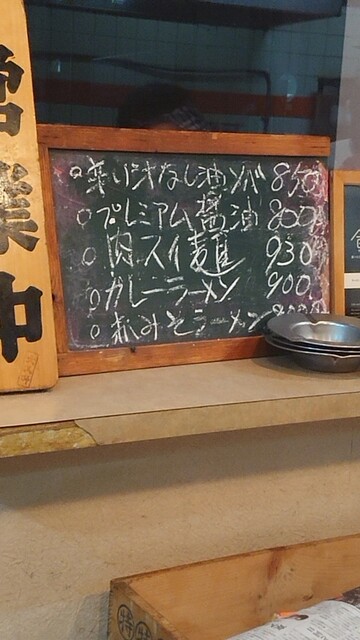 営業中
○辛い汁なし油ソバ 850
○プレミアム醤油 800
○肉スイ麺 930
○カレーラーメン 900
○私みそラーメン
特 特